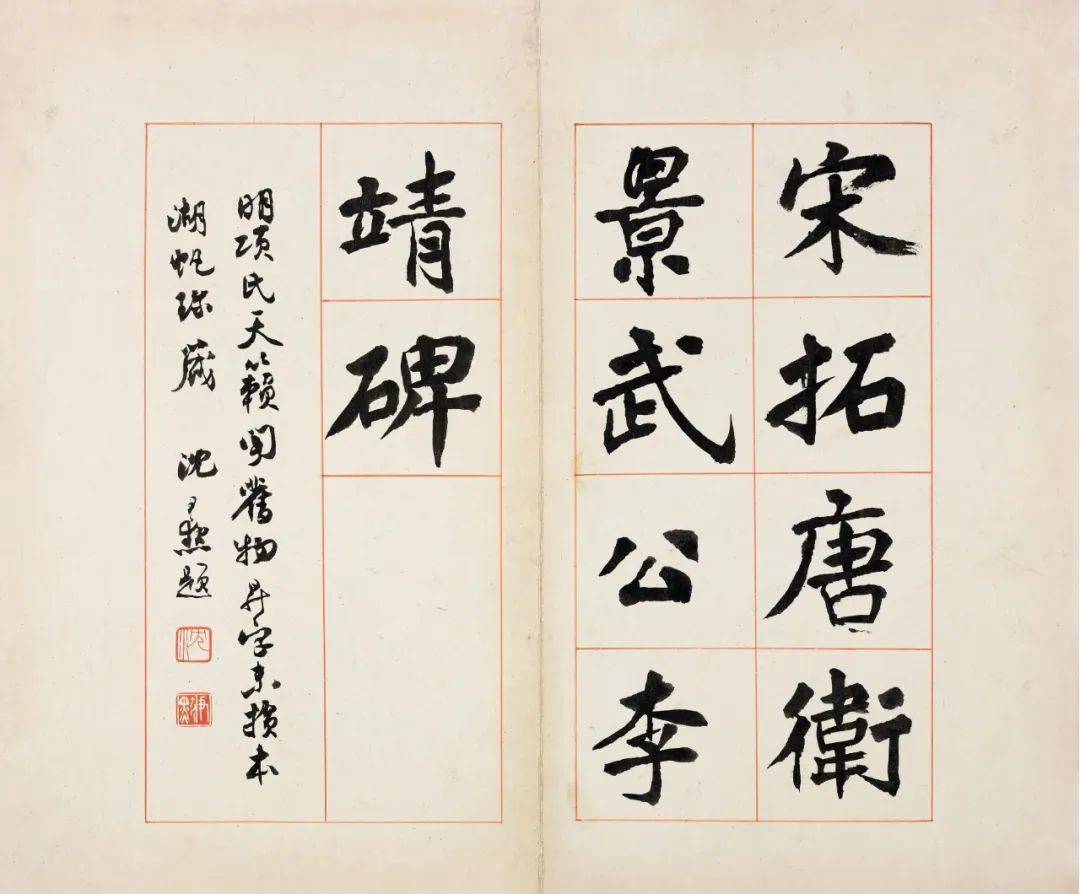 宋拓唐衛
景武公李
靖碑
明項氏天籟閣舊物昇字未損本
湖帆珍藏 沈尹默題
沈
尹默